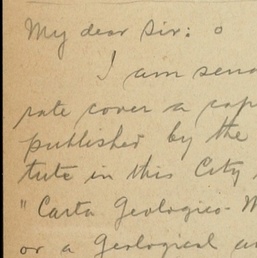 My dear Sir:
I am send
rate cover a cop
published by the
tute in this City
"Carta Geologico-M
or a Geological an